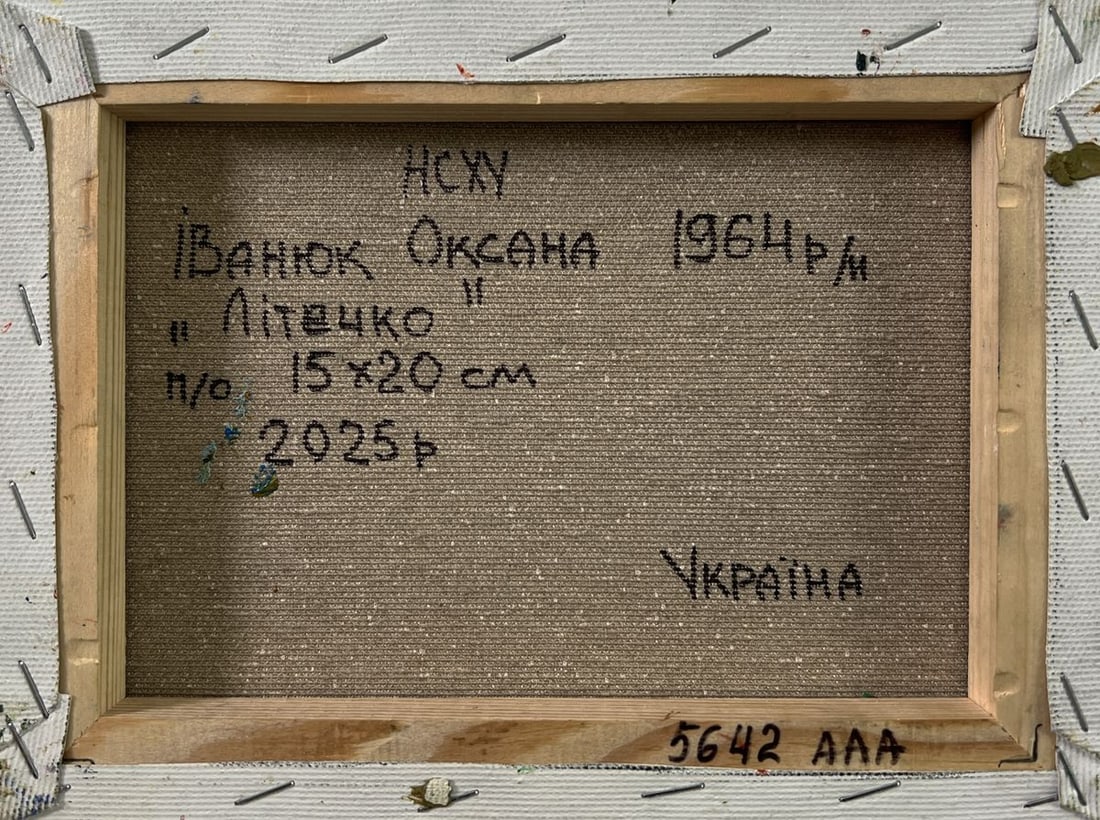 НСХУ
Іванюк Оксана 1964 р/м
„Літечко"
п/о 15х20 см
2025р
Україна
5642 ААА